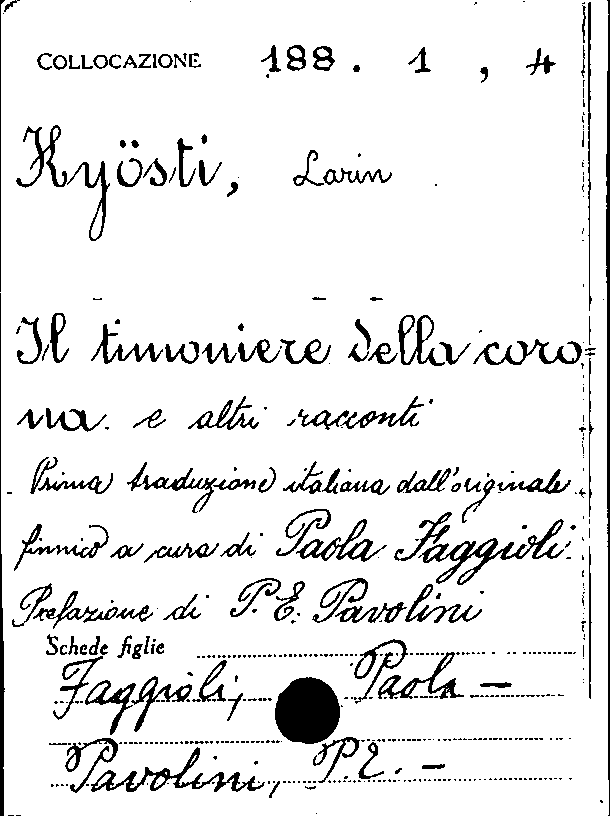 COLLOCAZIONE 188. 1, 4
Kyösti, Larin
Il timoniere della coro=
na e altri racconti
Prima traduzione italiana dall'originale
finnico a cura di Paola Faggioli.
Prefazione di P. E. Pavolini
Schede figlie
Faggioli, Paola —
Pavolini, P. E. —